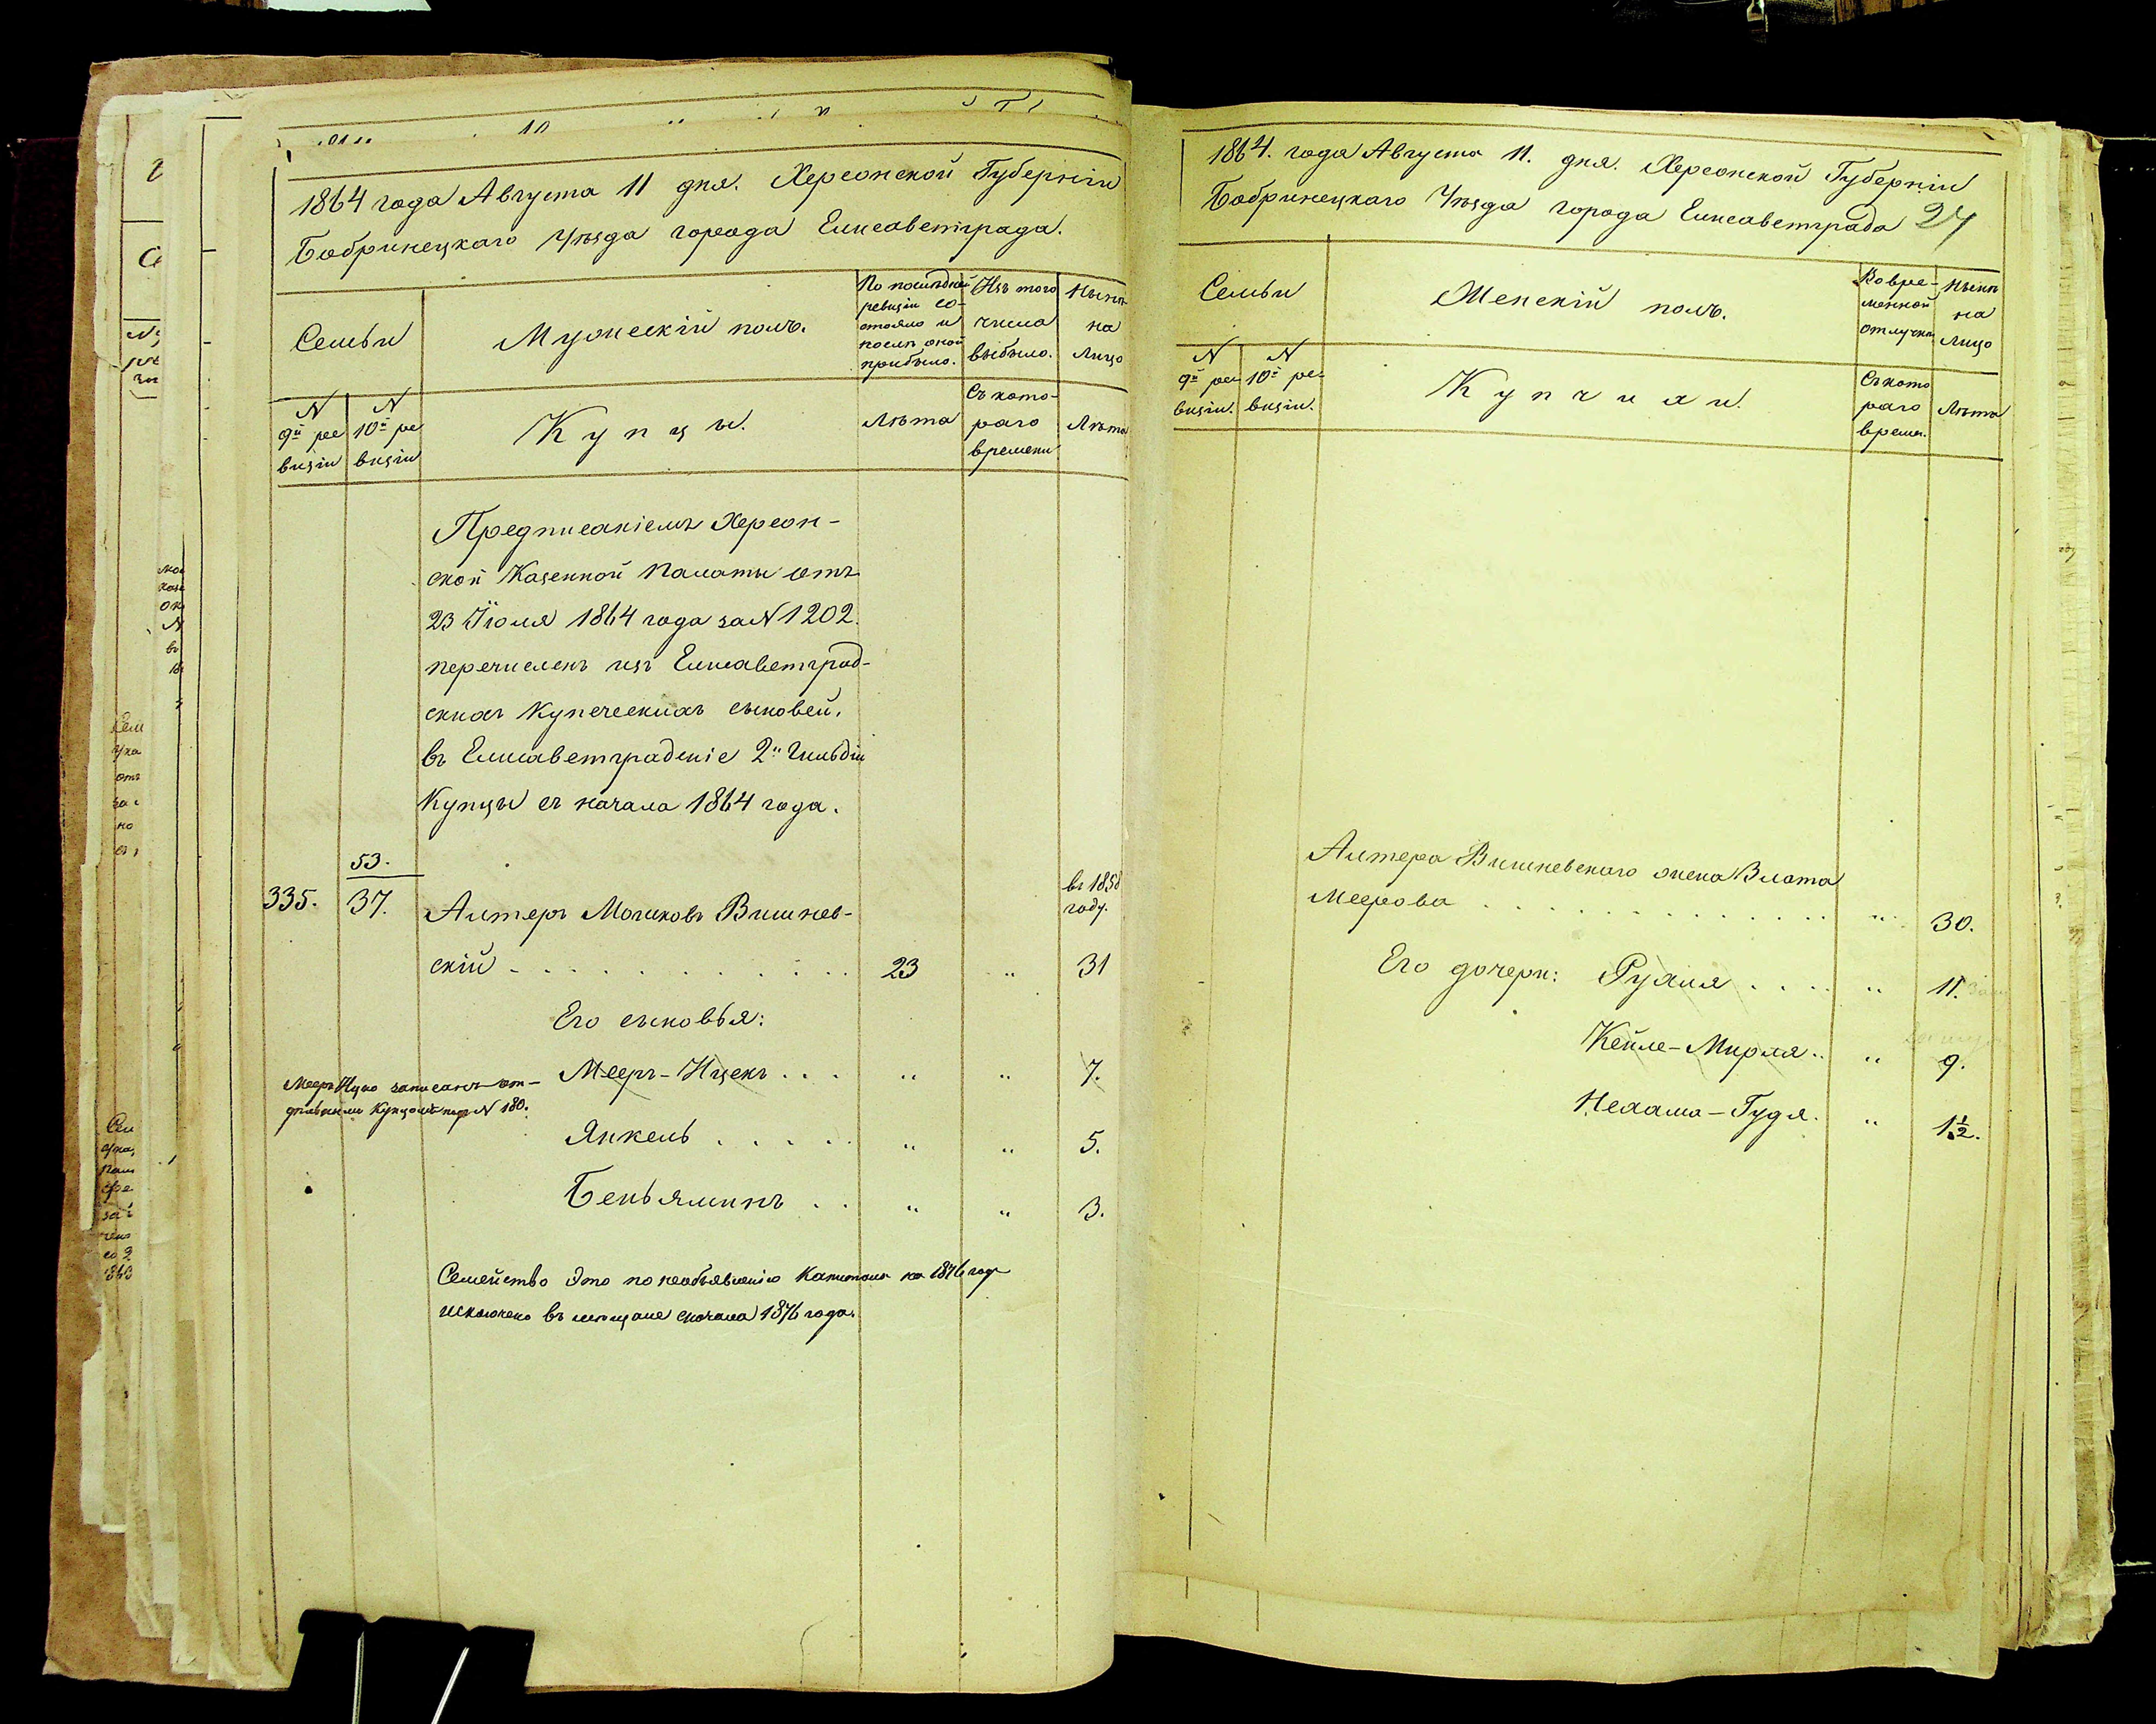 1864 года Августа 11 дня. Херсонской Губерніи
Бобринецкаго Уѣзда города Елисаветграда.
Семьи
Мужескій полъ.
По послѣдней
ревизіи со-
стояло и
послѣ оной
прибыло.
Изъ того
числа
выбыло.
Нынѣ
на
лицо
N
9й ре
визіи
N
10й ре
визіи
Купцы.
Лѣта
Съ кото-
раго
времени
Лѣта
Предписаніемъ Херсон-
ской Казенной Палаты отъ
23 Іюля 1864 года за N 1202.
перечисленъ изъ Елисаветград-
скихъ Купеческихъ сыновей,
въ Елисаветградскіе 2й Гильдіи
Купцы съ начала 1864 года.
53.
335. 37. Алтеръ Мошковъ Вишнев-
въ 1858
году.
скій . . . . . . . . . . 23 " 31
Его сыновья:
Мееръ-Ицекъ . . . " " 7.
Мееръ Ицко записанъ от-
дѣльнымъ Купцомъ под N 180.
Янкель . . . . . " " 5.
Беньяминъ . . " " 3.
Семейство это по необъявленію Капитала на 1876 годъ
исключено въ мещане сначала 1876 года.
1864. года Августа 11. дня. Херсонской Губерніи
Бобринецкаго Уѣзда города Елисаветграда 24
Семьи
Женскій полъ.
Во вре-
менной
отлучкѣ
Нынѣ
на
лицо
N
9й ре
визіи.
N
10й ре-
визіи.
Купчихи.
Съ кото
раго
время.
Лѣта
Алтера Вишневскаго жена Злата
Меерова . . . . . . . . . . . . " 30.
Его дочери: Рухля . . . . " 11.
Кейле-Мирля.. " 9.
Нехама-Гудя. " 1½.